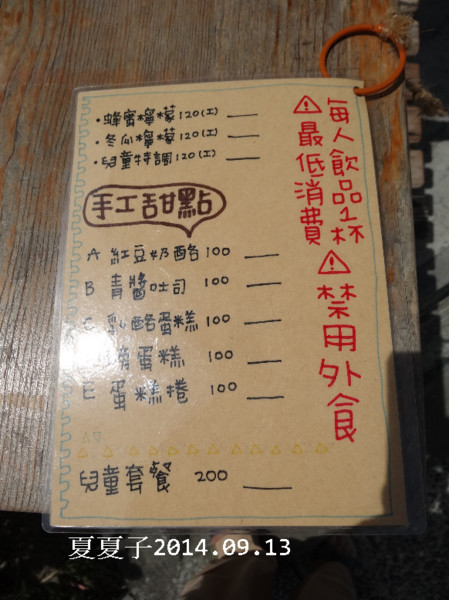 ・蜂蜜檸檬120(工)
・冬瓜檸檬120(工)
・兒童特調120(工)
手工甜點
A 紅豆奶酪 100
B 青醬吐司 100
乳酪蛋糕 100
蛋糕 100
E 蛋糕捲 100
兒童套餐 200
⚠每人飲品1杯
最低消費
⚠禁用外食
夏夏子2014.09.13